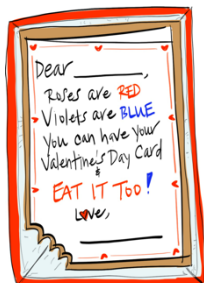 Dear ________,
Roses are RED
Violets are BLUE
You can have your
Valentine's Day Card
&
EAT IT TOO!
Love,
________